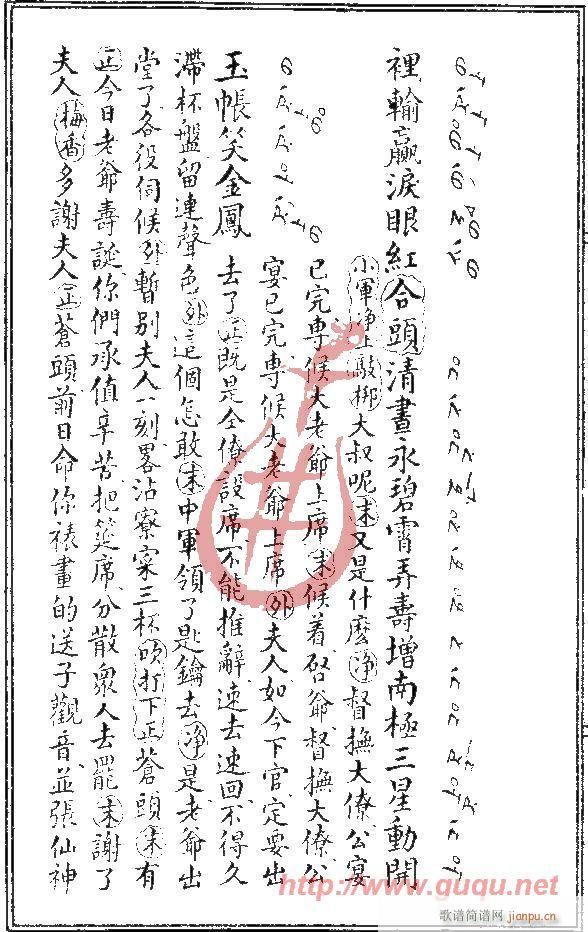 裡輸贏淚眼紅合頭清晝永碧霄弄壽增南極三星動開
小軍淨上敲梆大叔呢末又是什麽淨督撫大僚公宴
已完專候大老爺上席末候着啓爺督撫大僚公
宴已完專候大老爺上席外夫人如今下官定要出
玉帳笑金鳳去了正既是仝僚設席不能推辭速去速回不得久
滯杯盤留連聲色外這個怎敢末中軍領了匙鑰去淨是老爺出
堂了各役伺候外暫別夫人一刻畧沾寮寀三杯吹打下正蒼頭末有
正今日老爺壽誕你們承值辛苦把筵席分散衆人去罷末謝了
夫人梅香多謝夫人正蒼頭前日命你裱畫的送子觀音並張仙神
http://www.guqu.net
歌谱简谱网
jianpu.cn